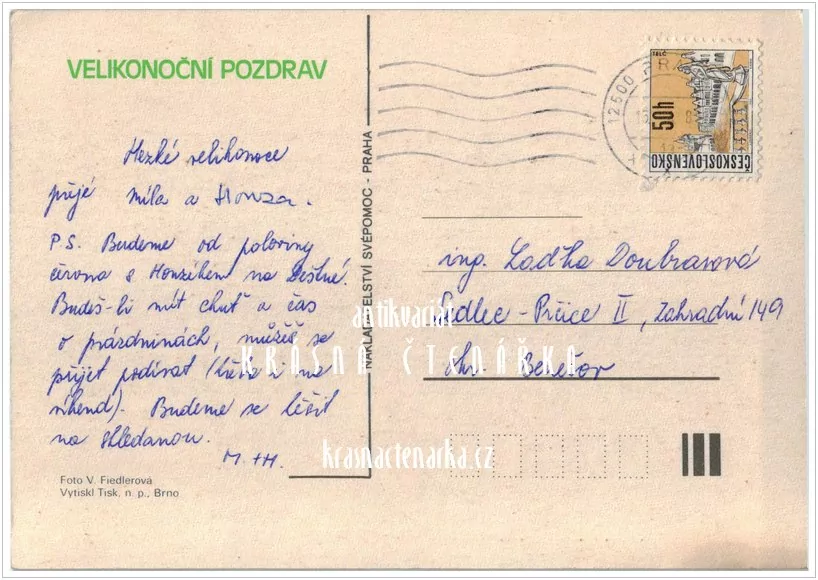 VELIKONOČNÍ POZDRAV
Hezké velikonoce
přejí Míla a Honza.
P.S. Budeme od poloviny
června s Honzíkem na Deštné.
Budeš-li mít chuť a čas
o prázdninách, můžeš se
přijet podívat (třeba i na
víkend). Budeme se těšit
na shledanou.
M.+H.
Foto V. Fiedlerová
Vytiskl Tisk, n. p., Brno
NAKLADATELSTVÍ SVÉPOMOC - PRAHA
TELČ
50h
ČESKOSLOVENSKO
12500
ing. Laďka Doubrasová
Sedlec-Prčice II, Zahradní 149
okr. Benešov
antikvariát
KRÁSNÁ ČTENÁŘKA
krasnactenarka.cz